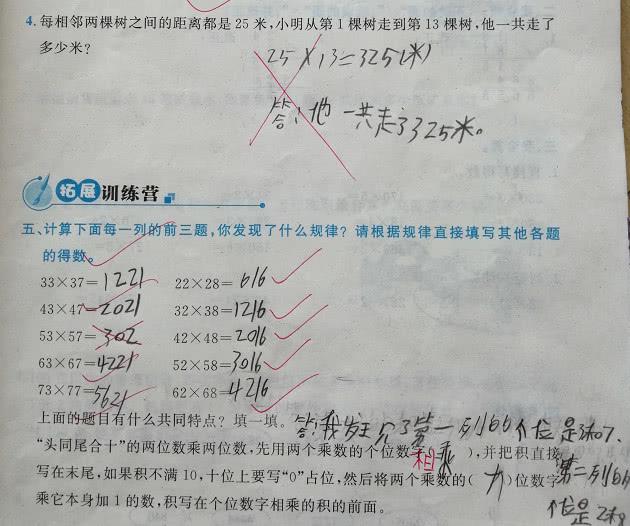 4. 每相邻两棵树之间的距离都是 25 米,小明从第 1 棵树走到第 13 棵树,他一共走了
多少米?
25×13=325(米)
答:他一共走了325米。
拓展训练营
五、计算下面每一列的前三题,你发现了什么规律?请根据规律直接填写其他各题
的得数。
33×37=1221 22×28=616
43×47=2021 32×38=1216
53×57=302 42×48=2016
63×67=4221 52×58=3016
73×77=5621 62×68=4216
上面的题目有什么共同特点?填一填。答:我发现了第一列的个位是3和7、
“头同尾合十”的两位数乘两位数,先用两个乘数的个位数字(相乘),并把积直接 第二列的
写在末尾,如果积不满 10,十位上要写“0”占位,然后将两个乘数的(十)位数字
个位是2和8
乘它本身加 1 的数,积写在个位数字相乘的积的前面。